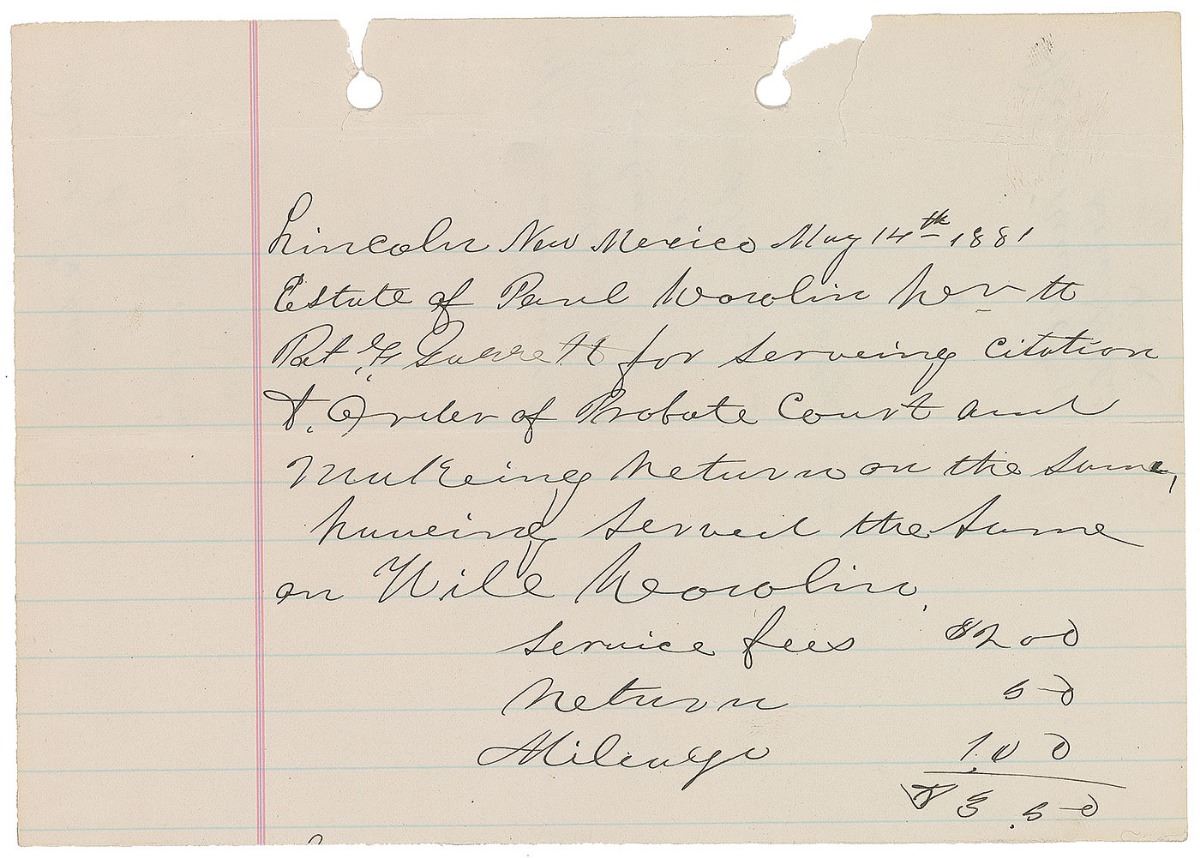 Lincoln New Mexico May 14th 1881
Estate of Paul Dowlin Dr to
Pat. F. Garrett for serveing citation
& Order of Probate Court and
Makeing Return on the same,
haveing served the same
on Will Dowlin
Service fees $2 00
Return 50
Mileage 1.00
$ 3.50